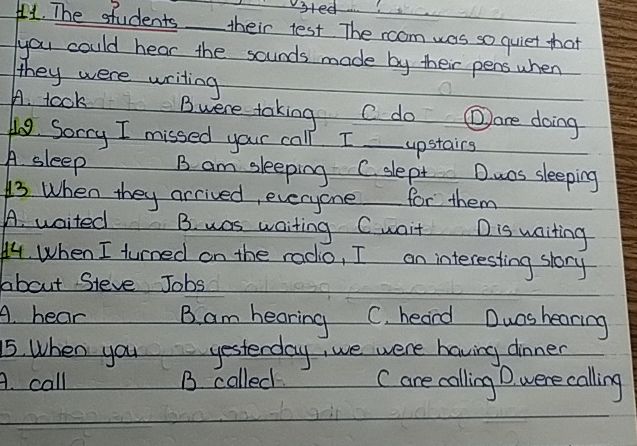 11. The students ___ their test The room was so quiet that
you could hear the sounds made by their pens when
they were writing
A. took B were taking C. do D are doing
12. Sorry I missed your call I ___ upstairs
A sleep B am sleeping C. slept D. was sleeping
13 When they arrived, everyone ___ for them
A. waited B. was waiting C. wait D is waiting
14. When I turned on the radio, I ___ an interesting story
about Steve Jobs
A. hear B. am hearing C. heard D was hearing
15. When you ___ yesterday, we were having dinner
A. call B called C are calling D. were calling